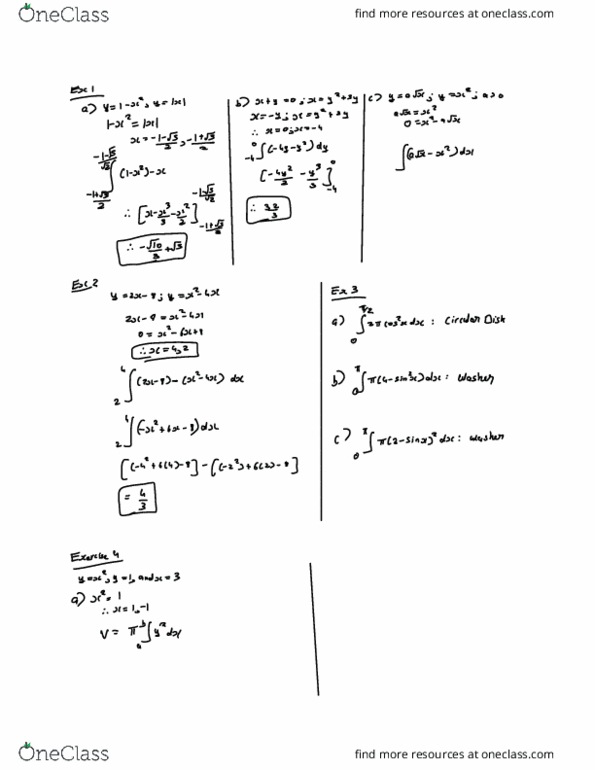 OneClass
find more resources at oneclass.com
Ex 1
a) y=1-x², y=|x|
1-x²=|x|
x=-1-√5/2, -1+√5/2
(1-x²)-x
b) x+y=0; x=y²+3y
x=-y; x=y²+3y
∴ x=0; x=-4
∫(-4y-y²)dy
[-4y²/2 - y³/3]
∴ 32/3
c) y=a√x; y=x²; a>0
a√x=x²
0=x²-a√x
∫(a√x-x²)dx
Ex 2
y=2x-8; y=x²-4x
2x-8=x²-4x
0=x²-6x+8
∴ x=4,2
∫(2x-8)-(x²-4x) dx
∫(-x²+6x-8)dx
[(-4²+6(4)-8]-[(-2²)+6(2)-8]
= 4/3
Ex 3
a) cos²x dx : Circular Disk
b) ∫π(4-sin²x)dx : Washer
c) ∫π(2-sinx)² dx : Washer
Exercise 4
y=x², y=1, and x=3
a) x²=1
∴ x=1,-1
V= π∫y²dx
OneClass
find more resources at oneclass.com